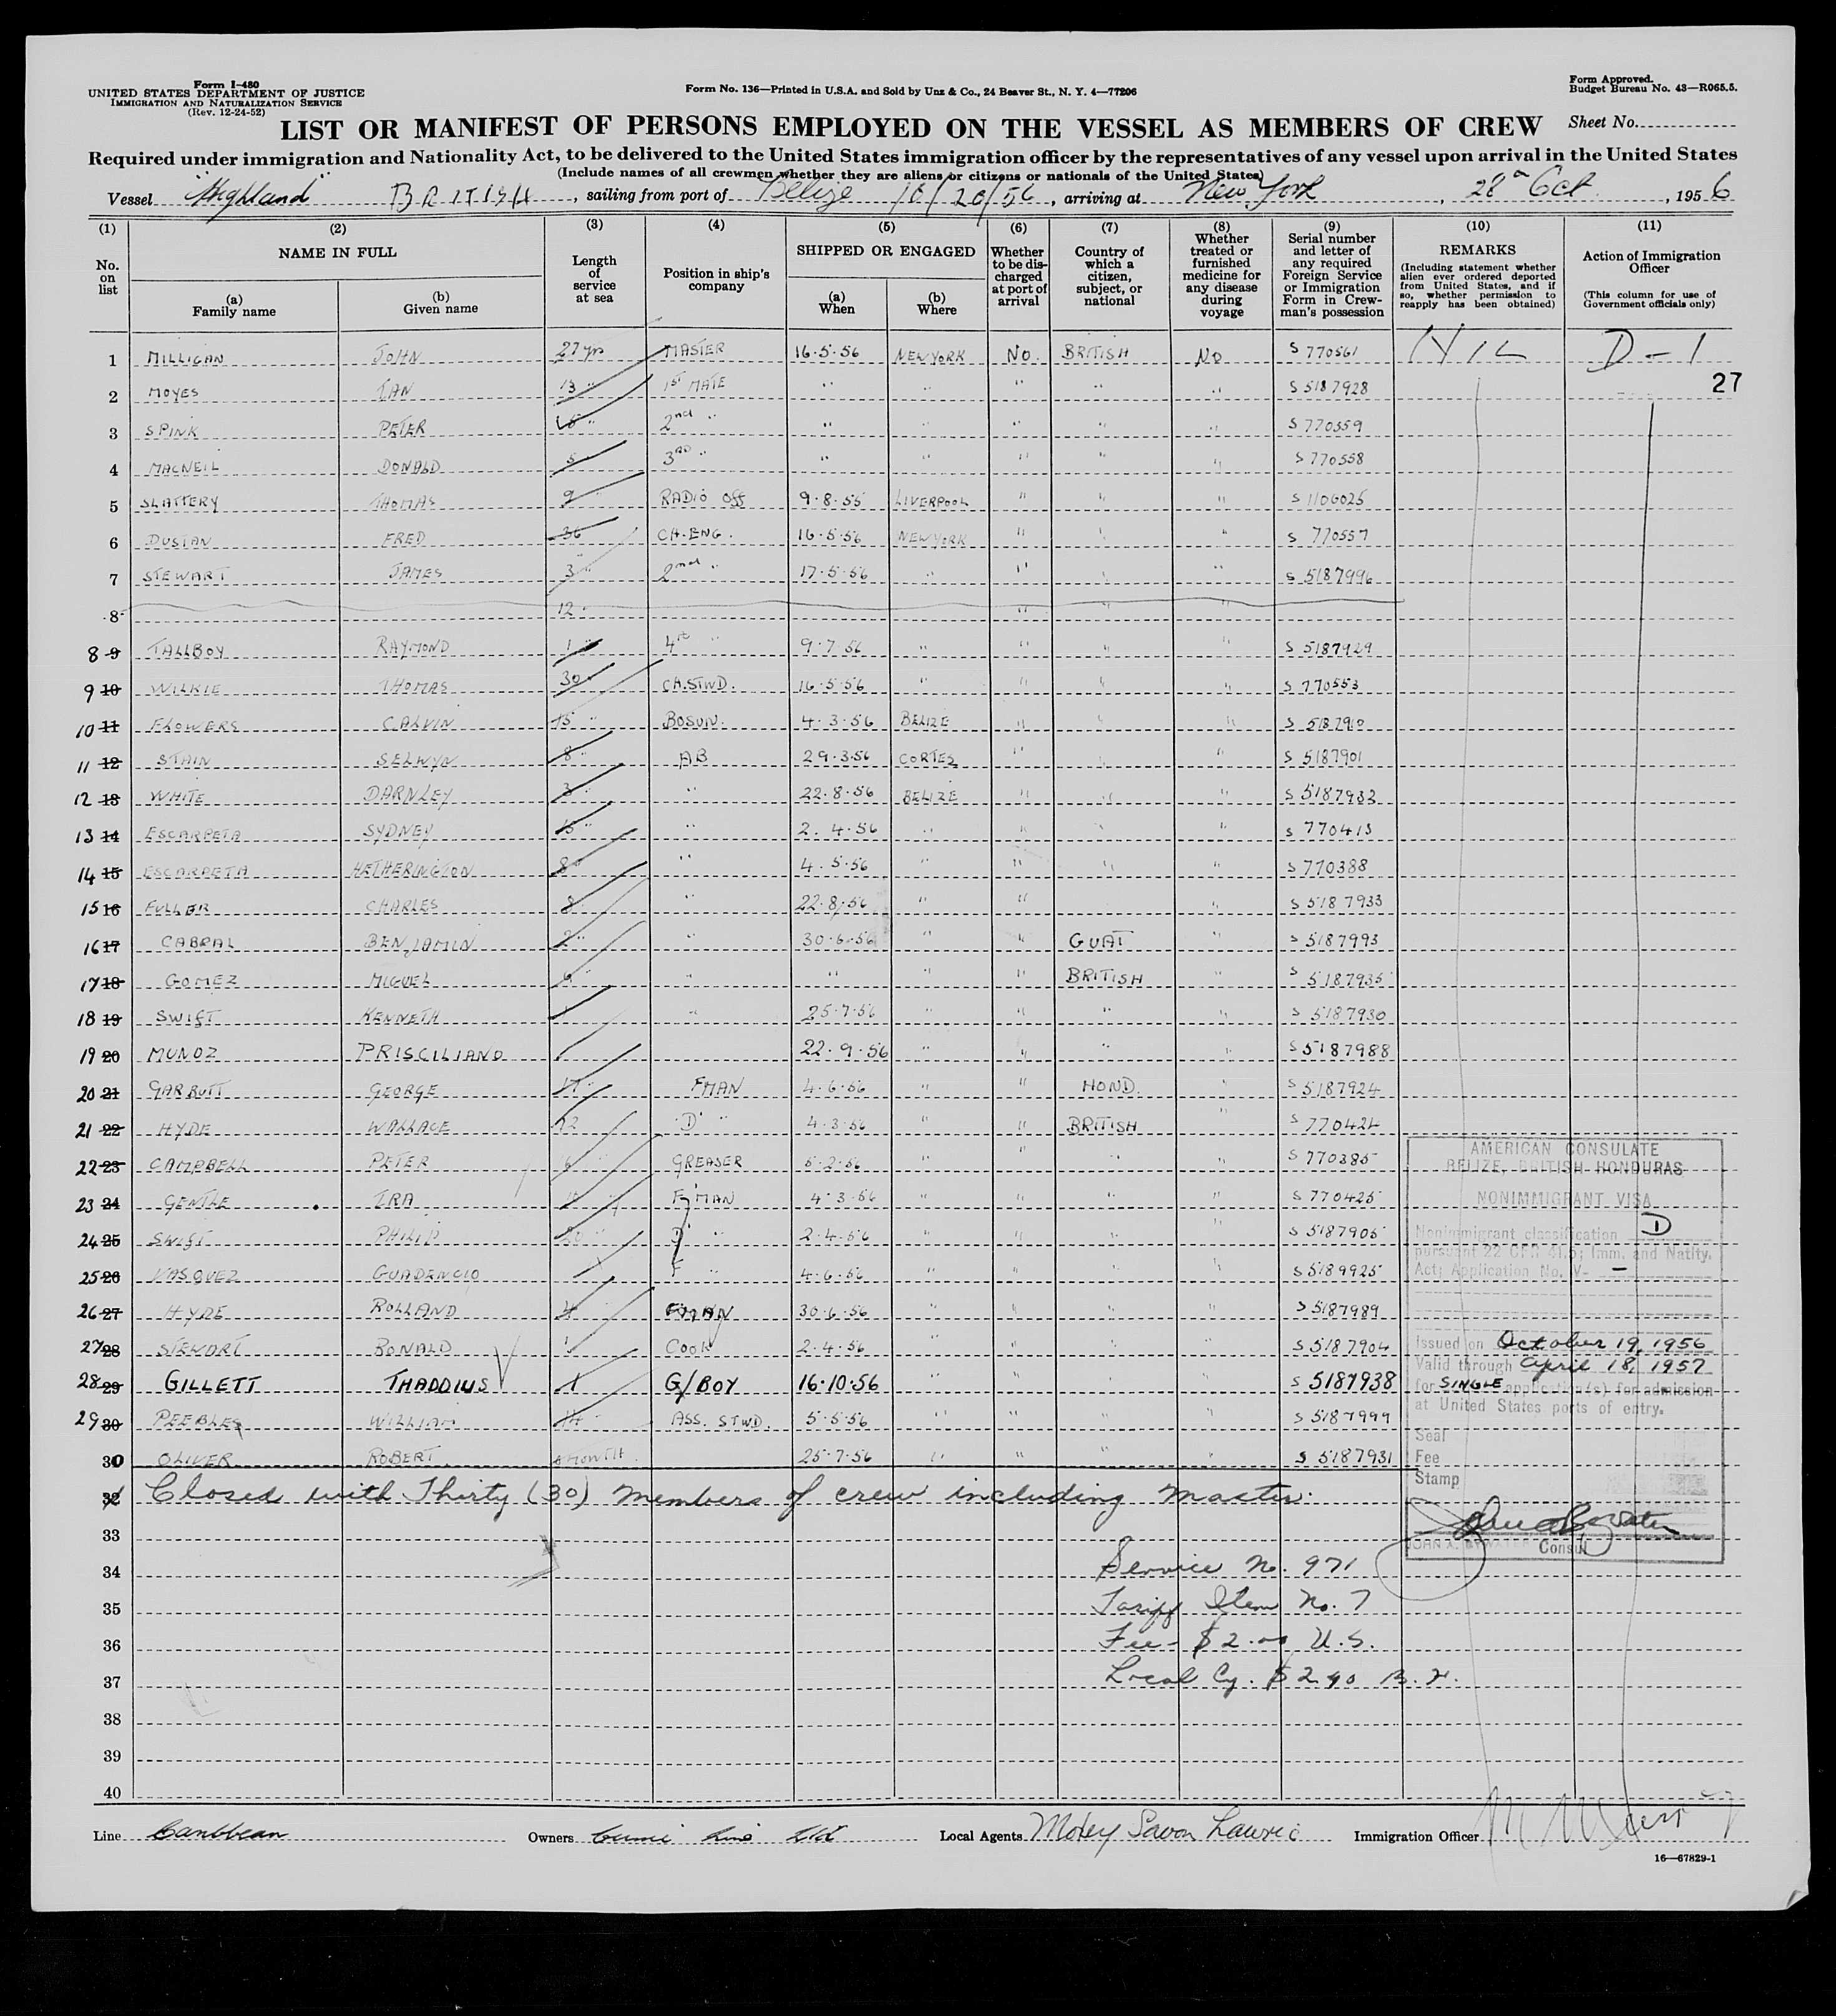 Form I-480
UNITED STATES DEPARTMENT OF JUSTICE
IMMIGRATION AND NATURALIZATION SERVICE
(Rev. 12-24-52)
Form No. 136—Printed in U.S.A. and Sold by Unz & Co., 24 Beaver St., N. Y. 4—77206
Form Approved.
Budget Bureau No. 43—R065.5.
LIST OR MANIFEST OF PERSONS EMPLOYED ON THE VESSEL AS MEMBERS OF CREW
Sheet No.
Required under immigration and Nationality Act, to be delivered to the United States immigration officer by the representatives of any vessel upon arrival in the United States
(Include names of all crewmen whether they are aliens or citizens or nationals of the United States)
Vessel "Highland" BRITISH, sailing from port of Belize 10/20/56, arriving at New York, 28 Oct., 1956
(1) No. on list
(2) NAME IN FULL
(a) Family name
(b) Given name
(3) Length of service at sea
(4) Position in ship's company
(5) SHIPPED OR ENGAGED
(a) When
(b) Where
(6) Whether to be discharged at port of arrival
(7) Country of which a citizen, subject, or national
(8) Whether treated or furnished medicine for any disease during voyage
(9) Serial number and letter of any required Foreign Service or Immigration Form in Crewman's possession
(10) REMARKS
(Including statement whether alien ever ordered deported from United States, and if so, whether permission to reapply has been obtained)
(11) Action of Immigration Officer
(This column for use of Government officials only)
1 MILLIGAN JOHN 27 yrs MASTER 16.5.56 NEW YORK No. BRITISH No S 770561 NIL D-1
2 MOYES IAN 13 " 1st MATE " " " " " S 5187928 27
3 SPINK PETER " 2nd " " " " " " S 770559
4 MACNEIL DONALD 5 3RD " " " " " " S 770558
5 SLATTERY THOMAS 9 RADIO Off 9.8.55 LIVERPOOL " " " S 1106025
6 DUSTAN FRED 36 CH.ENG. 16.5.56 NEW YORK " " " S 770557
7 STEWART JAMES 3 " 2nd " 17.5.56 " " " " S 5187996
8 12 " " " "
8 9 TALLBOY RAYMOND 1 " 4th " 9.7.56 " " " " S 5187929
9 10 WILKIE THOMAS 30 CH.STWD. 16.5.56 " " " " S 770553
10 11 FLOWERS CALVIN 15 " BOSUN. 4.3.56 BELIZE " " " S 5187910
11 12 STAIN SELWYN 8 " AB 29.3.56 CORTES " " " S 5187901
12 13 WHITE DARNLEY 3 " " 22.8.56 BELIZE " " " S 5187932
13 14 ESCARPETA SYDNEY 15 " " 2.4.56 " " " " S 770413
14 15 ESCARPETA HETHERINGTON 8 " 4.5.56 " " " " S 770388
15 16 FULLER CHARLES 8 " 22.8.56 " " " S 5187933
16 17 CABRAL BENJAMIN 2 " " 30.6.56 " " GUAT " S 5187993
17 18 GOMEZ MIGUEL " " " " " BRITISH " S 5187935
18 19 SWIFT KENNETH " 25.7.56 " " " " S 5187930
19 20 MUNOZ PRISCILIANO 22.9.56 " " " S 5187988
20 21 GARBUTT GEORGE FMAN 4.6.56 " " HOND. " S 5187924
21 22 HYDE WALLACE 12 D " 4.3.56 " " BRITISH " S 770424
22 23 CAMPBELL PETER GREASER 5.2.56 " " " " S 770385
23 24 GENTLE IRA F/MAN 4.3.56 " " " " S 770425
24 25 SWIFT PHILIP 20 D " 2.4.56 " " " " S 5187905
25 26 VASQUEZ GUADENCIO F " 4.6.56 " " " " S 5189925
26 27 HYDE ROLLAND 4 FMAN 30.6.56 " " " " S 5187989
27 28 STEWART RONALD 1 COOK 2.4.56 " " " " S 5187904
28 29 GILLETT THADDIUS 1 G/BOY 16.10.56 " " " " S 5187938
29 30 PEEBLES WILLIAM 14 ASS. STWD. 5.5.56 " " " " S 5187999
30 OLIVER ROBERT MONTH 25.7.56 " " " " S 5187931
AMERICAN CONSULATE
BELIZE, BRITISH HONDURAS
NONIMMIGRANT VISA
Nonimmigrant classification D
pursuant 22 CFR 41.5; Imm. and Natlty.
Act; Application No. V- —
Issued on October 19, 1956
Valid through April 18, 1957
for SINGLE application(s) for admission
at United States ports of entry.
Seal
Fee
Stamp
JOHN A. BYWATER Consul
Closed with Thirty (30) members of crew including Master.
33
34
35
36
37
38
39
40
Service No. 971
Tariff Item No. 7
Fee - $2.00 U.S.
Local Cy. $2.90 B.H.
Line Caribbean Owners Line Ltd Local Agents Immigration Officer
16—67829-1